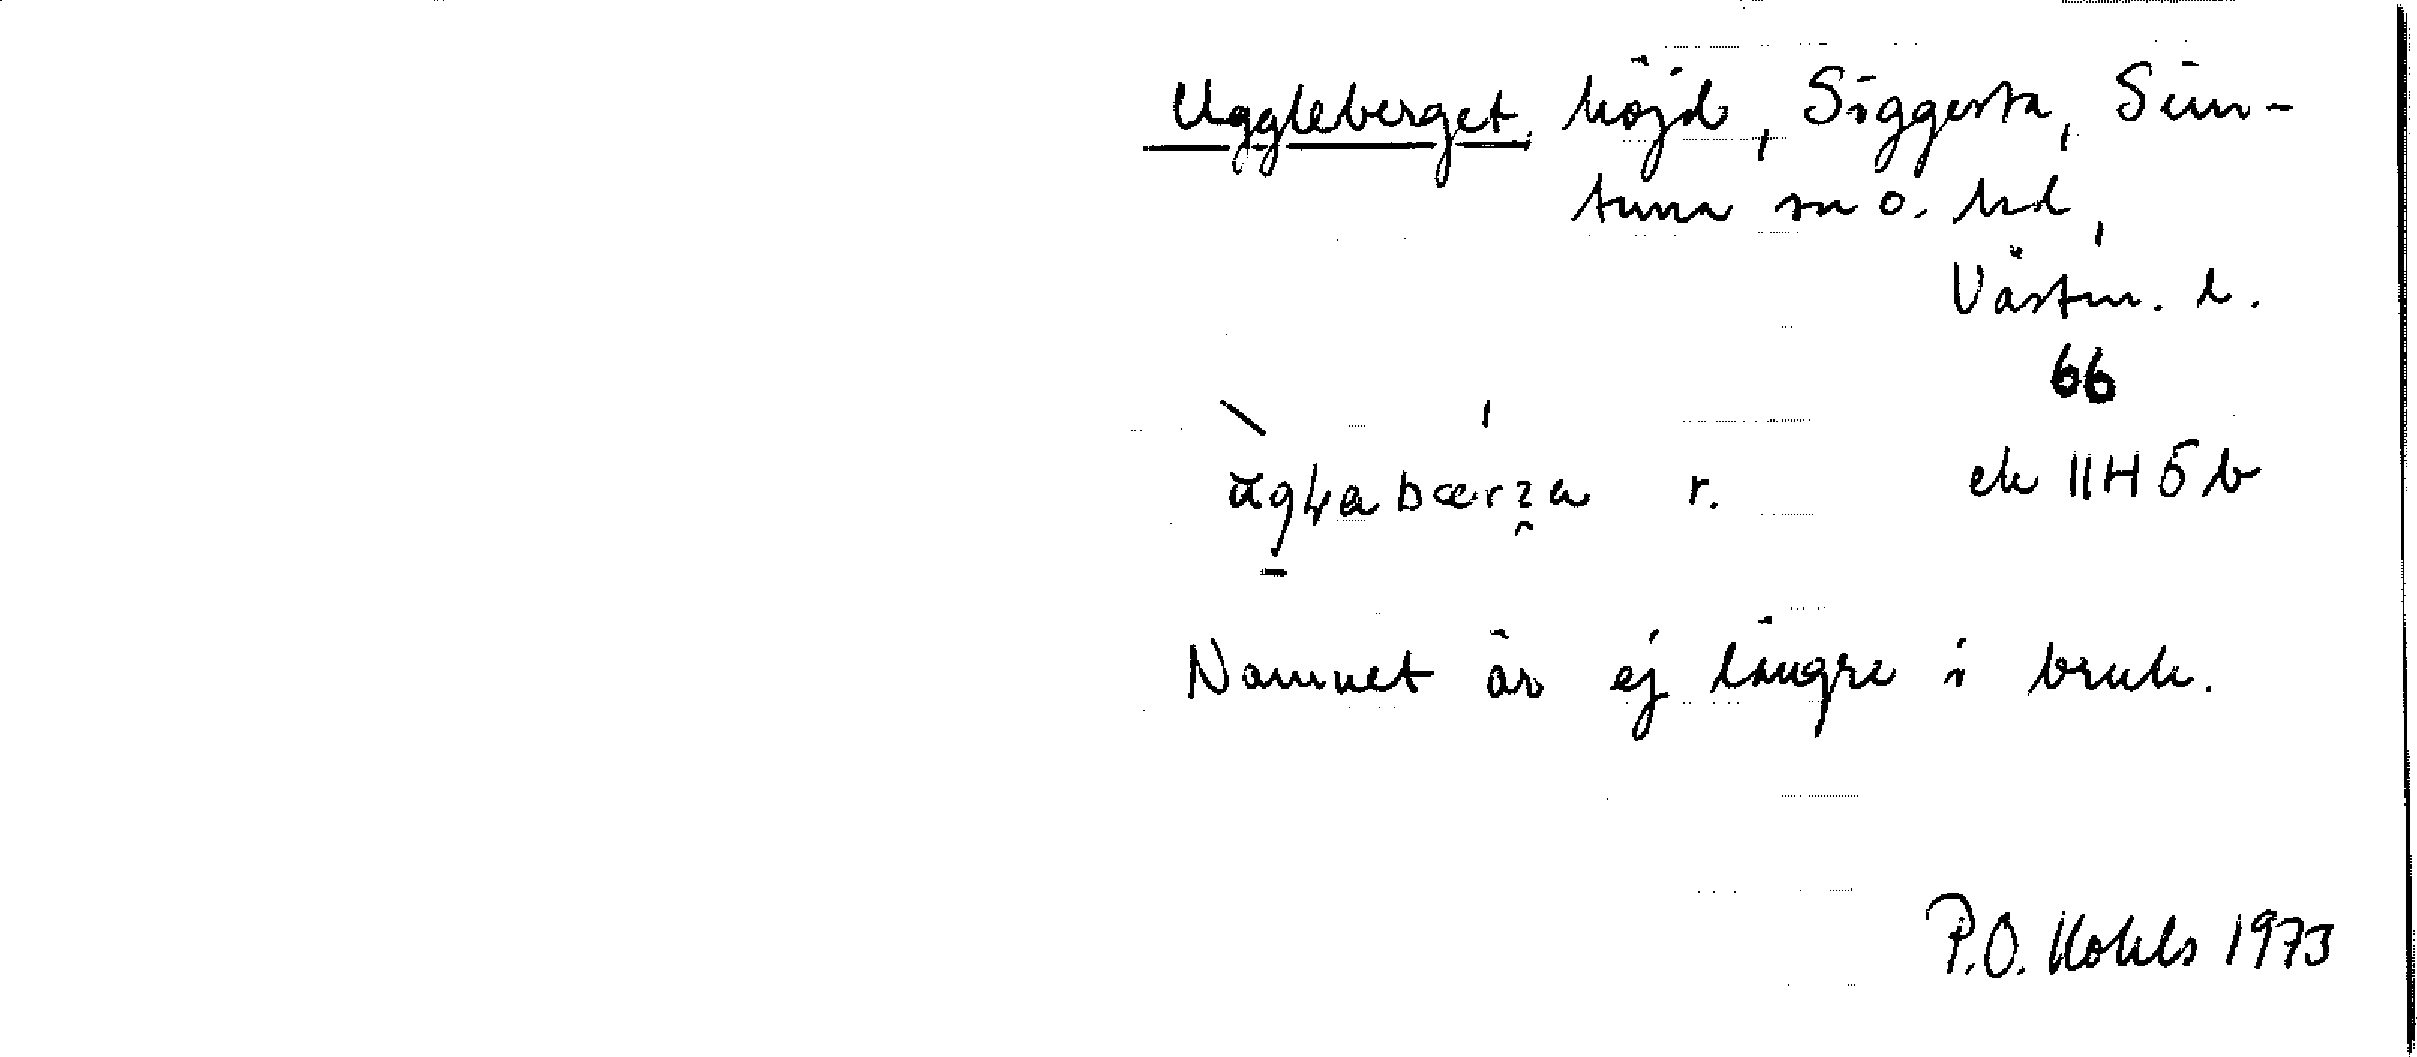 Uggleberget, höjd, Siggesta, Sim-
tuna sn o. hd,
Västm. l.
66
ek 11H 5b
r.
Namnet är ej längre i bruk.
P.O. Kohls 1973